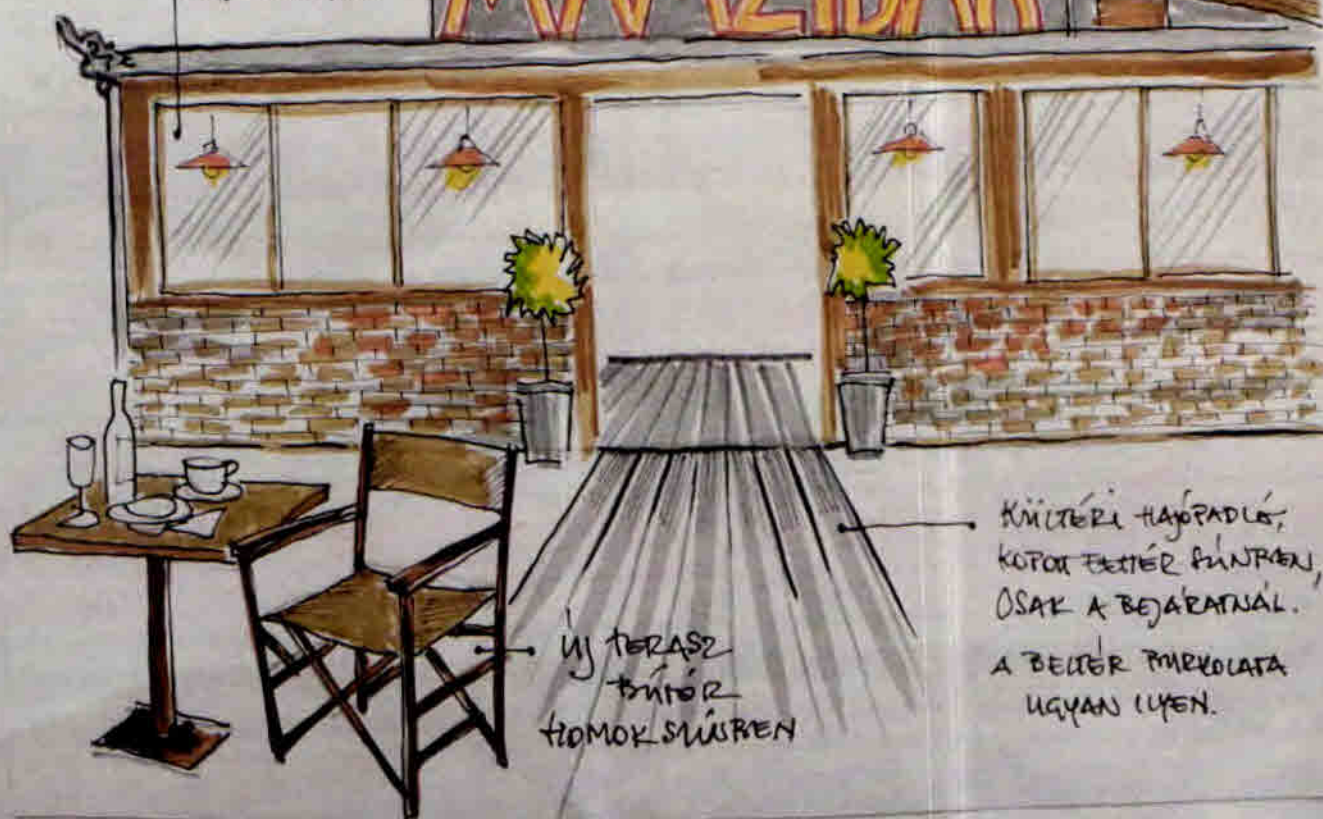 ÚJ TERASZ
BÚTOR
HOMOK SZÍNBEN
KÜLTÉRI HAJÓPADLÓ,
KOPOTT FEHÉR SZÍNBEN,
CSAK A BEJÁRATNÁL.
A BELTÉR BURKOLATA
UGYAN ILYEN.